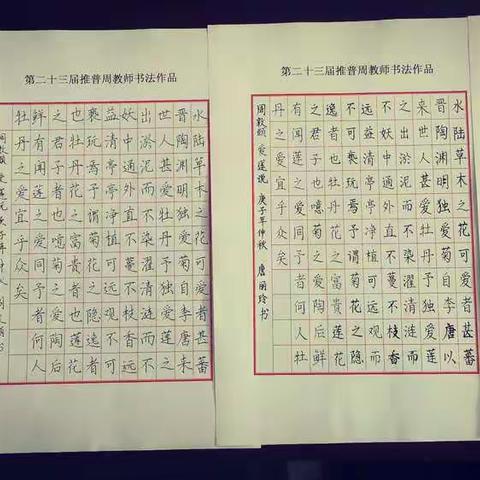 第二十三届推普周教师书法作品
水陆草木之花可爱者甚蕃
晋陶渊明独爱菊自李唐来
世人甚爱牡丹予独爱莲之
出淤泥而不染濯清涟而不
妖中通外直不蔓不枝香远
益清亭亭净植可远观不可
亵玩焉予谓菊花之隐逸者
也牡丹花之富贵者也莲花
之君子者也噫菊之爱陶后
鲜有闻莲之爱同予者何人
牡丹之爱宜乎众矣
第二十三届推普周教师书法作品
水陆草木之花可爱者甚蕃
晋陶渊明独爱菊自李唐以
来世人甚爱牡丹予独爱莲
之出淤泥而不染濯清涟而
不妖中通外直不蔓不枝香
远益清亭亭净植可远观而
不可亵玩焉予谓菊花之隐
逸者也牡丹花之富贵莲花
之君子也噫菊之爱陶后鲜
有闻莲之爱同予者何人牡
丹之爱宜乎众矣
周敦颐 爱莲说 庚子年仲秋 唐丽玲书